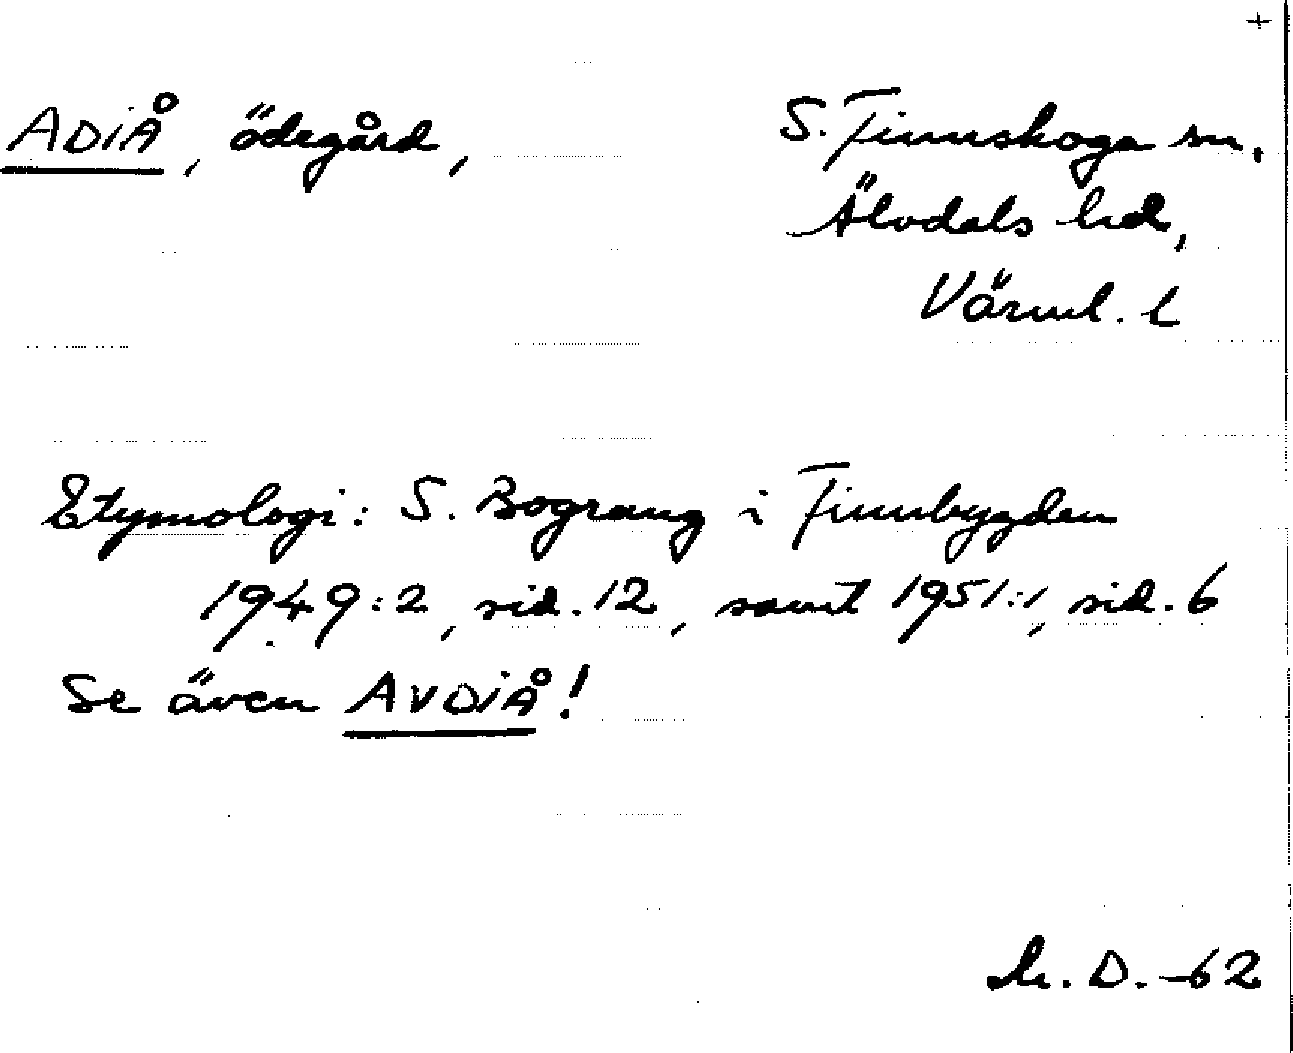 +
ADIÅ, ödegård, S. Finnskoga sn,
Älvdals hd,
Värml. l
Etymologi: S. Bograng i Finnbygden
1949:2, sid. 12, samt 1951:1, sid. 6
Se även AVDIÅ!
D. -62